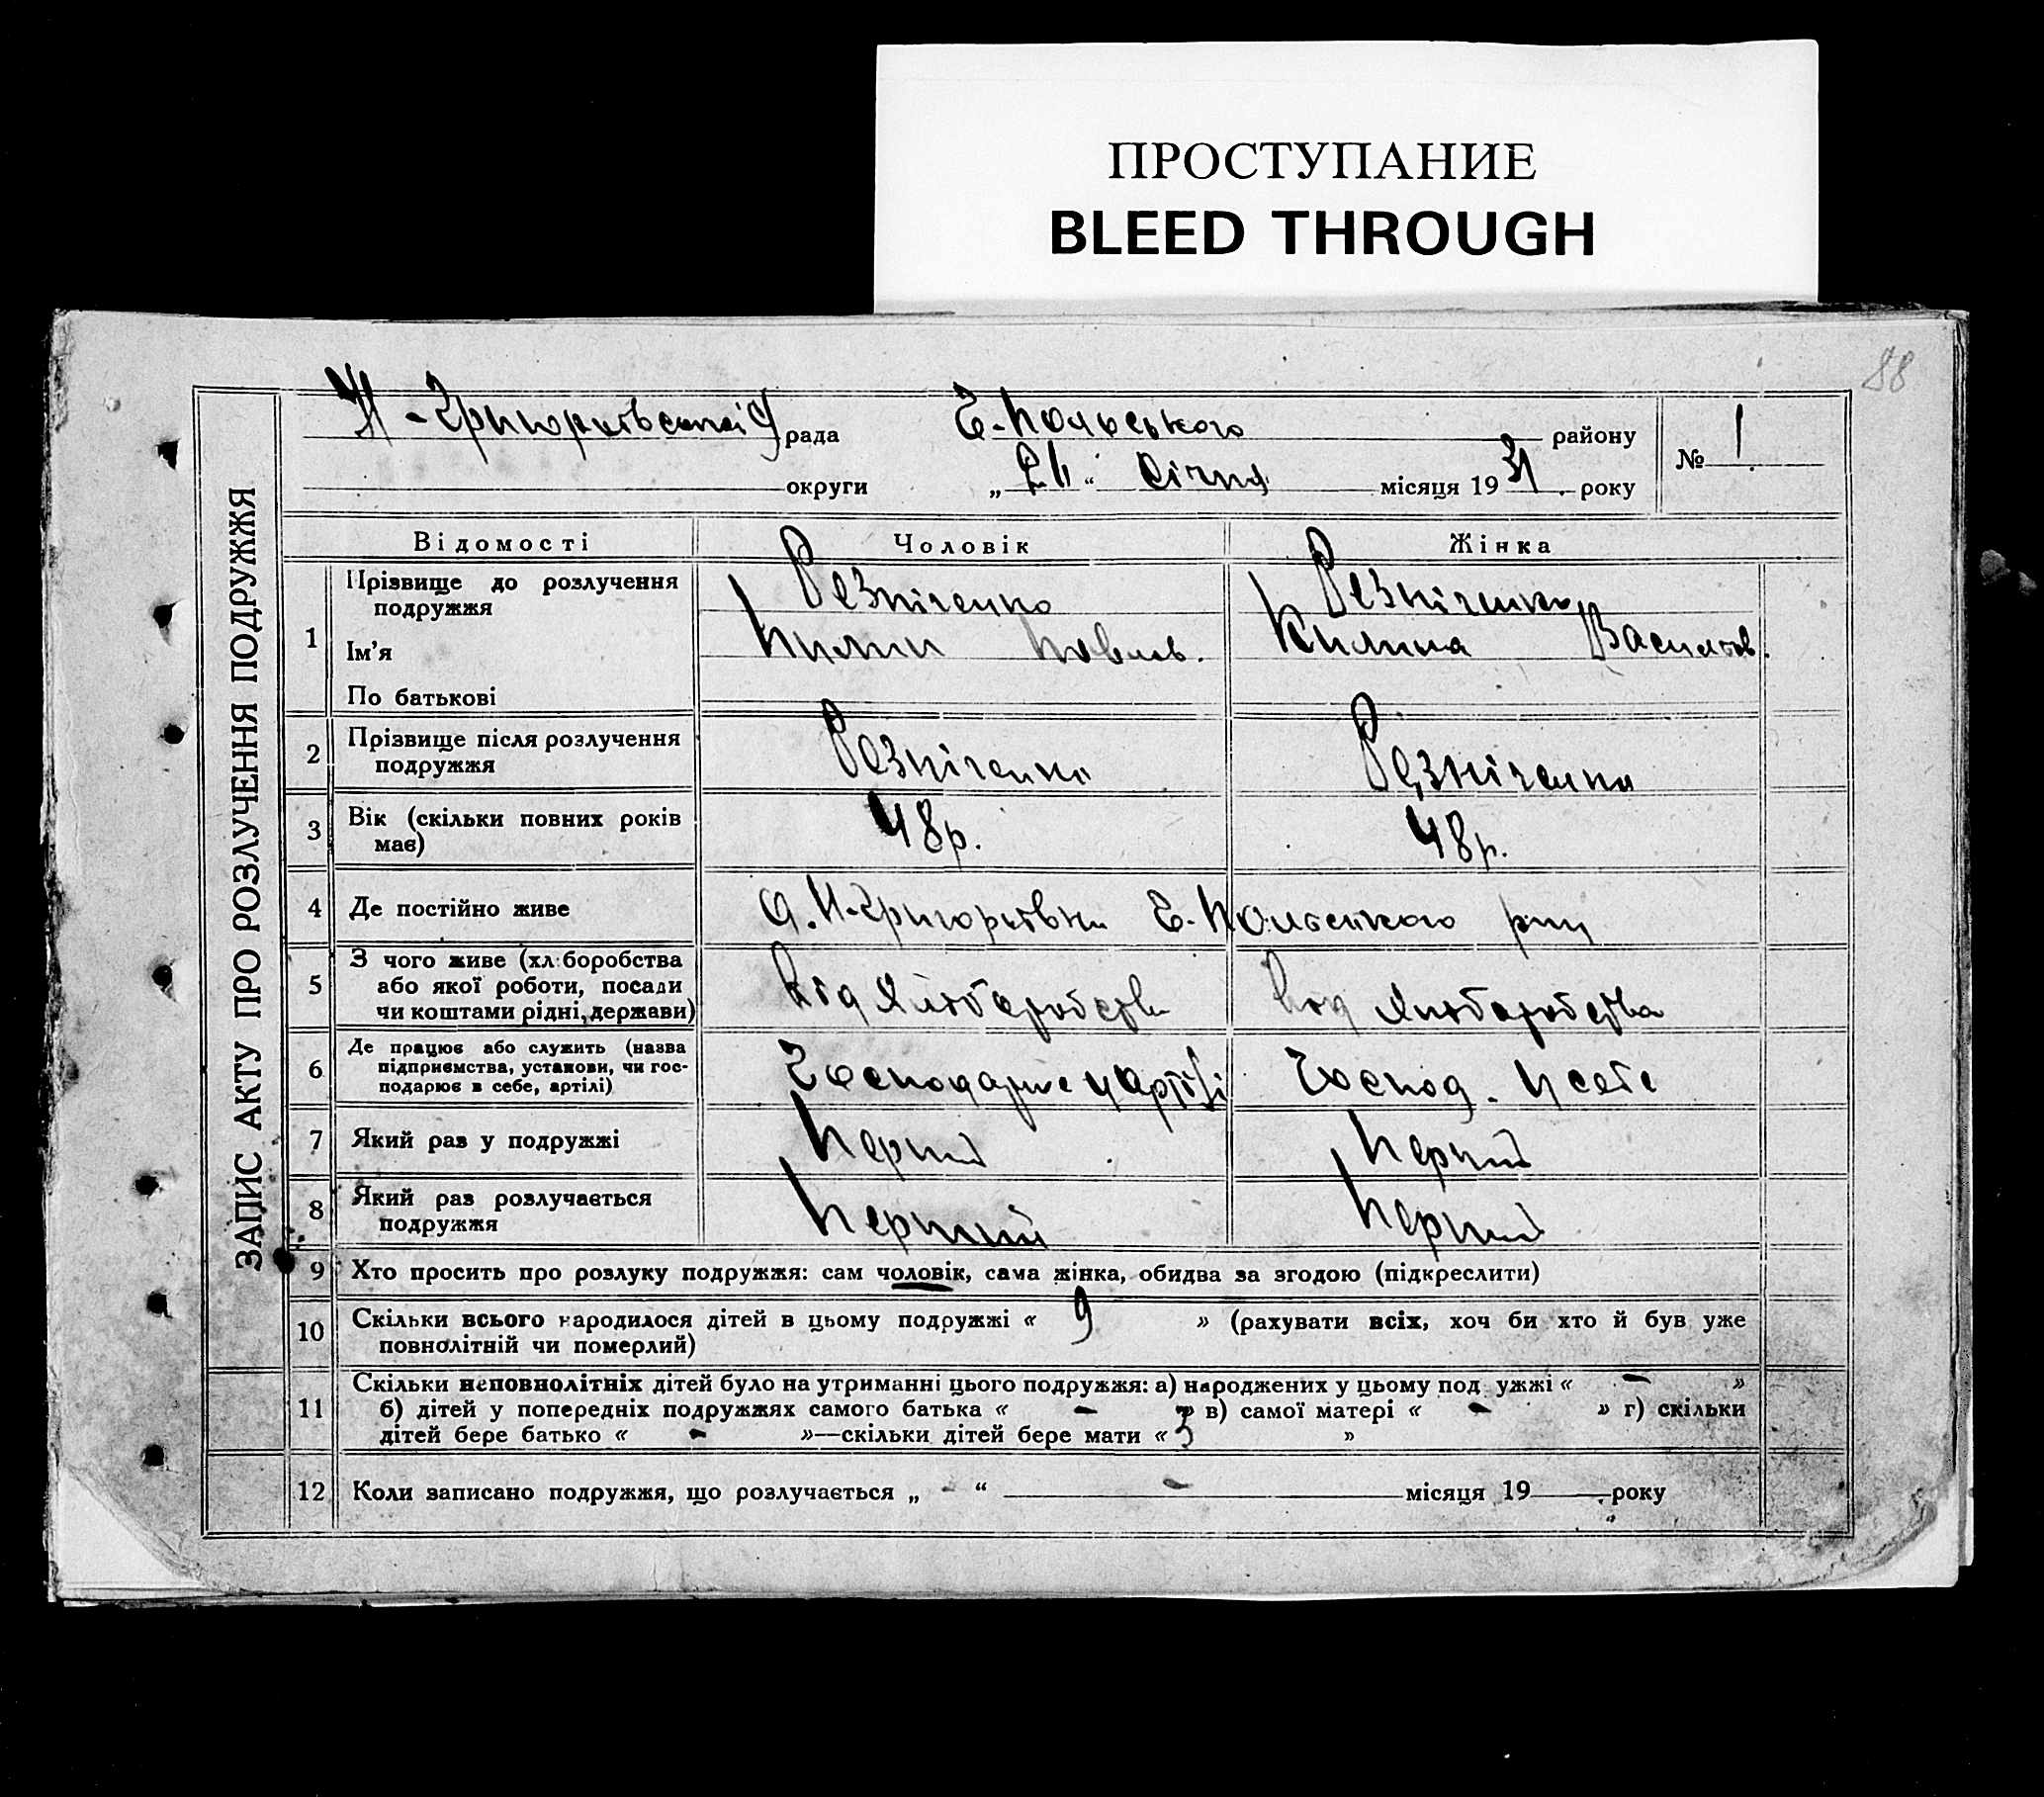 ПРОСТУПАНИЕ
BLEED THROUGH
88
ЗАПИС АКТУ ПРО РОЗЛУЧЕННЯ ПОДРУЖЖЯ
Н-Григорьївської рада Є.-Польського району № 1
округи „ “ січня місяця 1931 року
Відомості Чоловік Жінка
1 Прізвище до розлучення Резніченко Резніченко
подружжя
Ім'я Килина Васильов.
По батькові
2 Прізвище після розлучення Резніченко Резніченко
подружжя
3 Вік (скільки повних років 48 р. 48 р.
має)
4 Де постійно живе Н-Григорьївки Є.-Польського
5 З чого живе (хліборобства від Хліборобства від Хліборобства
або якої роботи, посади
чи коштами рідні, держави)
6 Де працює або служить (назва Господарює у артілі Господ. у себе
підприємства, установи, чи гос-
подарює в себе, артілі)
7 Який раз у подружжі Перший Перший
8 Який раз розлучається Перший Перший
подружжя
9 Хто просить про розлуку подружжя: сам чоловік, сама жінка, обидва за згодою (підкреслити)
10 Скільки всього народилося дітей в цьому подружжі « 9 » (рахувати всіх, хоч би хто й був уже
повнолітній чи померлий)
11 Скільки неповнолітніх дітей було на утриманні цього подружжя: а) народжених у цьому подружжі « - »
б) дітей у попередніх подружжях самого батька « - » в) самої матері « - » г) скільки
дітей бере батько « - »—скільки дітей бере мати « 3 »
12 Коли записано подружжя, що розлучається „ - “ - місяця 19 року